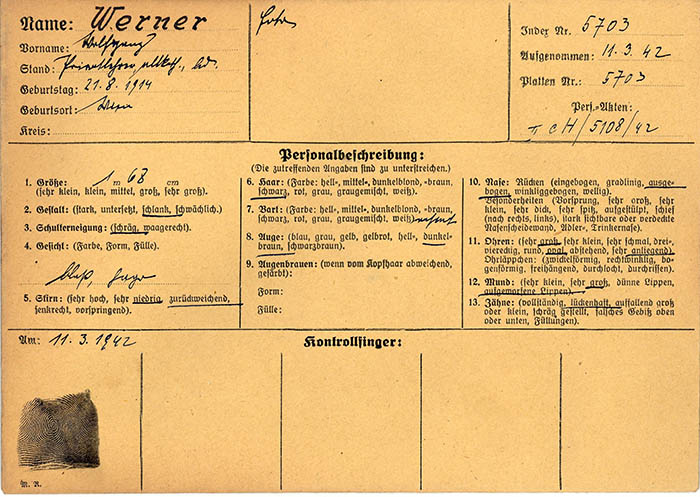 Name: Werner
Vorname: Wolfgang
Stand:
Geburtstag: 21.8.1914
Geburtsort: Wien
Kreis:
Foto
Index Nr. 5703
Aufgenommen: 11.3.42
Platten Nr.: 5703
Pers.-Akten:
II c H/5108/42
Personalbeschreibung:
(Die zutreffenden Angaben sind zu unterstreichen.)
1. Größe: 1 m 68 cm
(sehr klein, klein, mittel, groß, sehr groß).
2. Gestalt: (stark, untersetzt, schlank, schwächlich).
3. Schulterneigung: (schräg, waagerecht).
4. Gesicht: (Farbe, Form, Fülle).
blaß,
5. Stirn: (sehr hoch, sehr niedrig, zurückweichend,
senkrecht, vorspringend).
6. Haar: (Farbe: hell-, mittel-, dunkelblond, -braun,
schwarz, rot, grau, graugemischt, weiß).
7. Bart: (Farbe: hell-, mittel-, dunkelblond, -braun,
schwarz, rot, grau, graugemischt, weiß)
8. Auge: (blau, grau, gelb, gelbrot, hell-, dunkel-
braun, schwarzbraun).
9. Augenbrauen: (wenn vom Kopfhaar abweichend,
gefärbt):
Form:
Fülle:
10. Nase: Rücken (eingebogen, gradlinig, ausge-
bogen, winkliggebogen, wellig).
Besonderheiten (Vorsprung, sehr groß, sehr
klein, sehr dick, sehr spitz, aufgestülpt, schief
(nach rechts, links), stark sichtbare oder verdeckte
Nasenscheidewand, Adler-, Trinkernase).
11. Ohren: (sehr groß, sehr klein, sehr schmal, drei-,
viereckig, rund, oval, abstehend, sehr anliegend)
Ohrläppchen: (zwickelförmig, rechtwinklig, bo-
genförmig, freihängend, durchlocht, durchrissen).
12. Mund: (sehr klein, sehr groß, dünne Lippen,
aufgeworfene Lippen).
13. Zähne: (vollständig, lückenhaft, auffallend groß
oder klein, schräg gestellt, falsches Gebiß oben
oder unten, Füllungen).
Am: 11.3.1942
Kontrollfinger:
M. R.